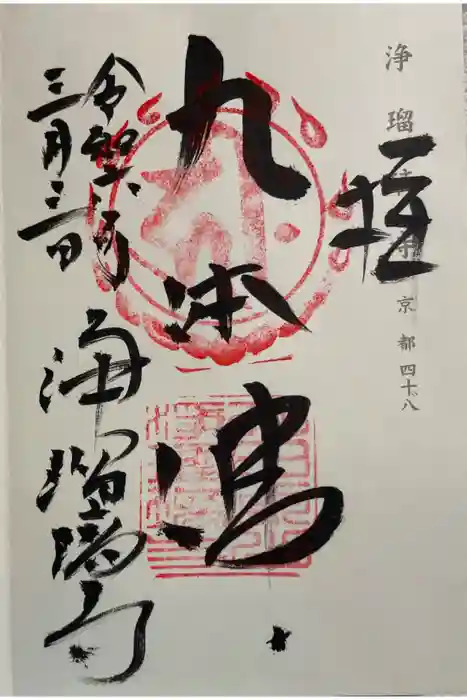 浄瑠璃寺 京都 四十八
拝
九体佛
令和
三月三日
浄瑠璃寺